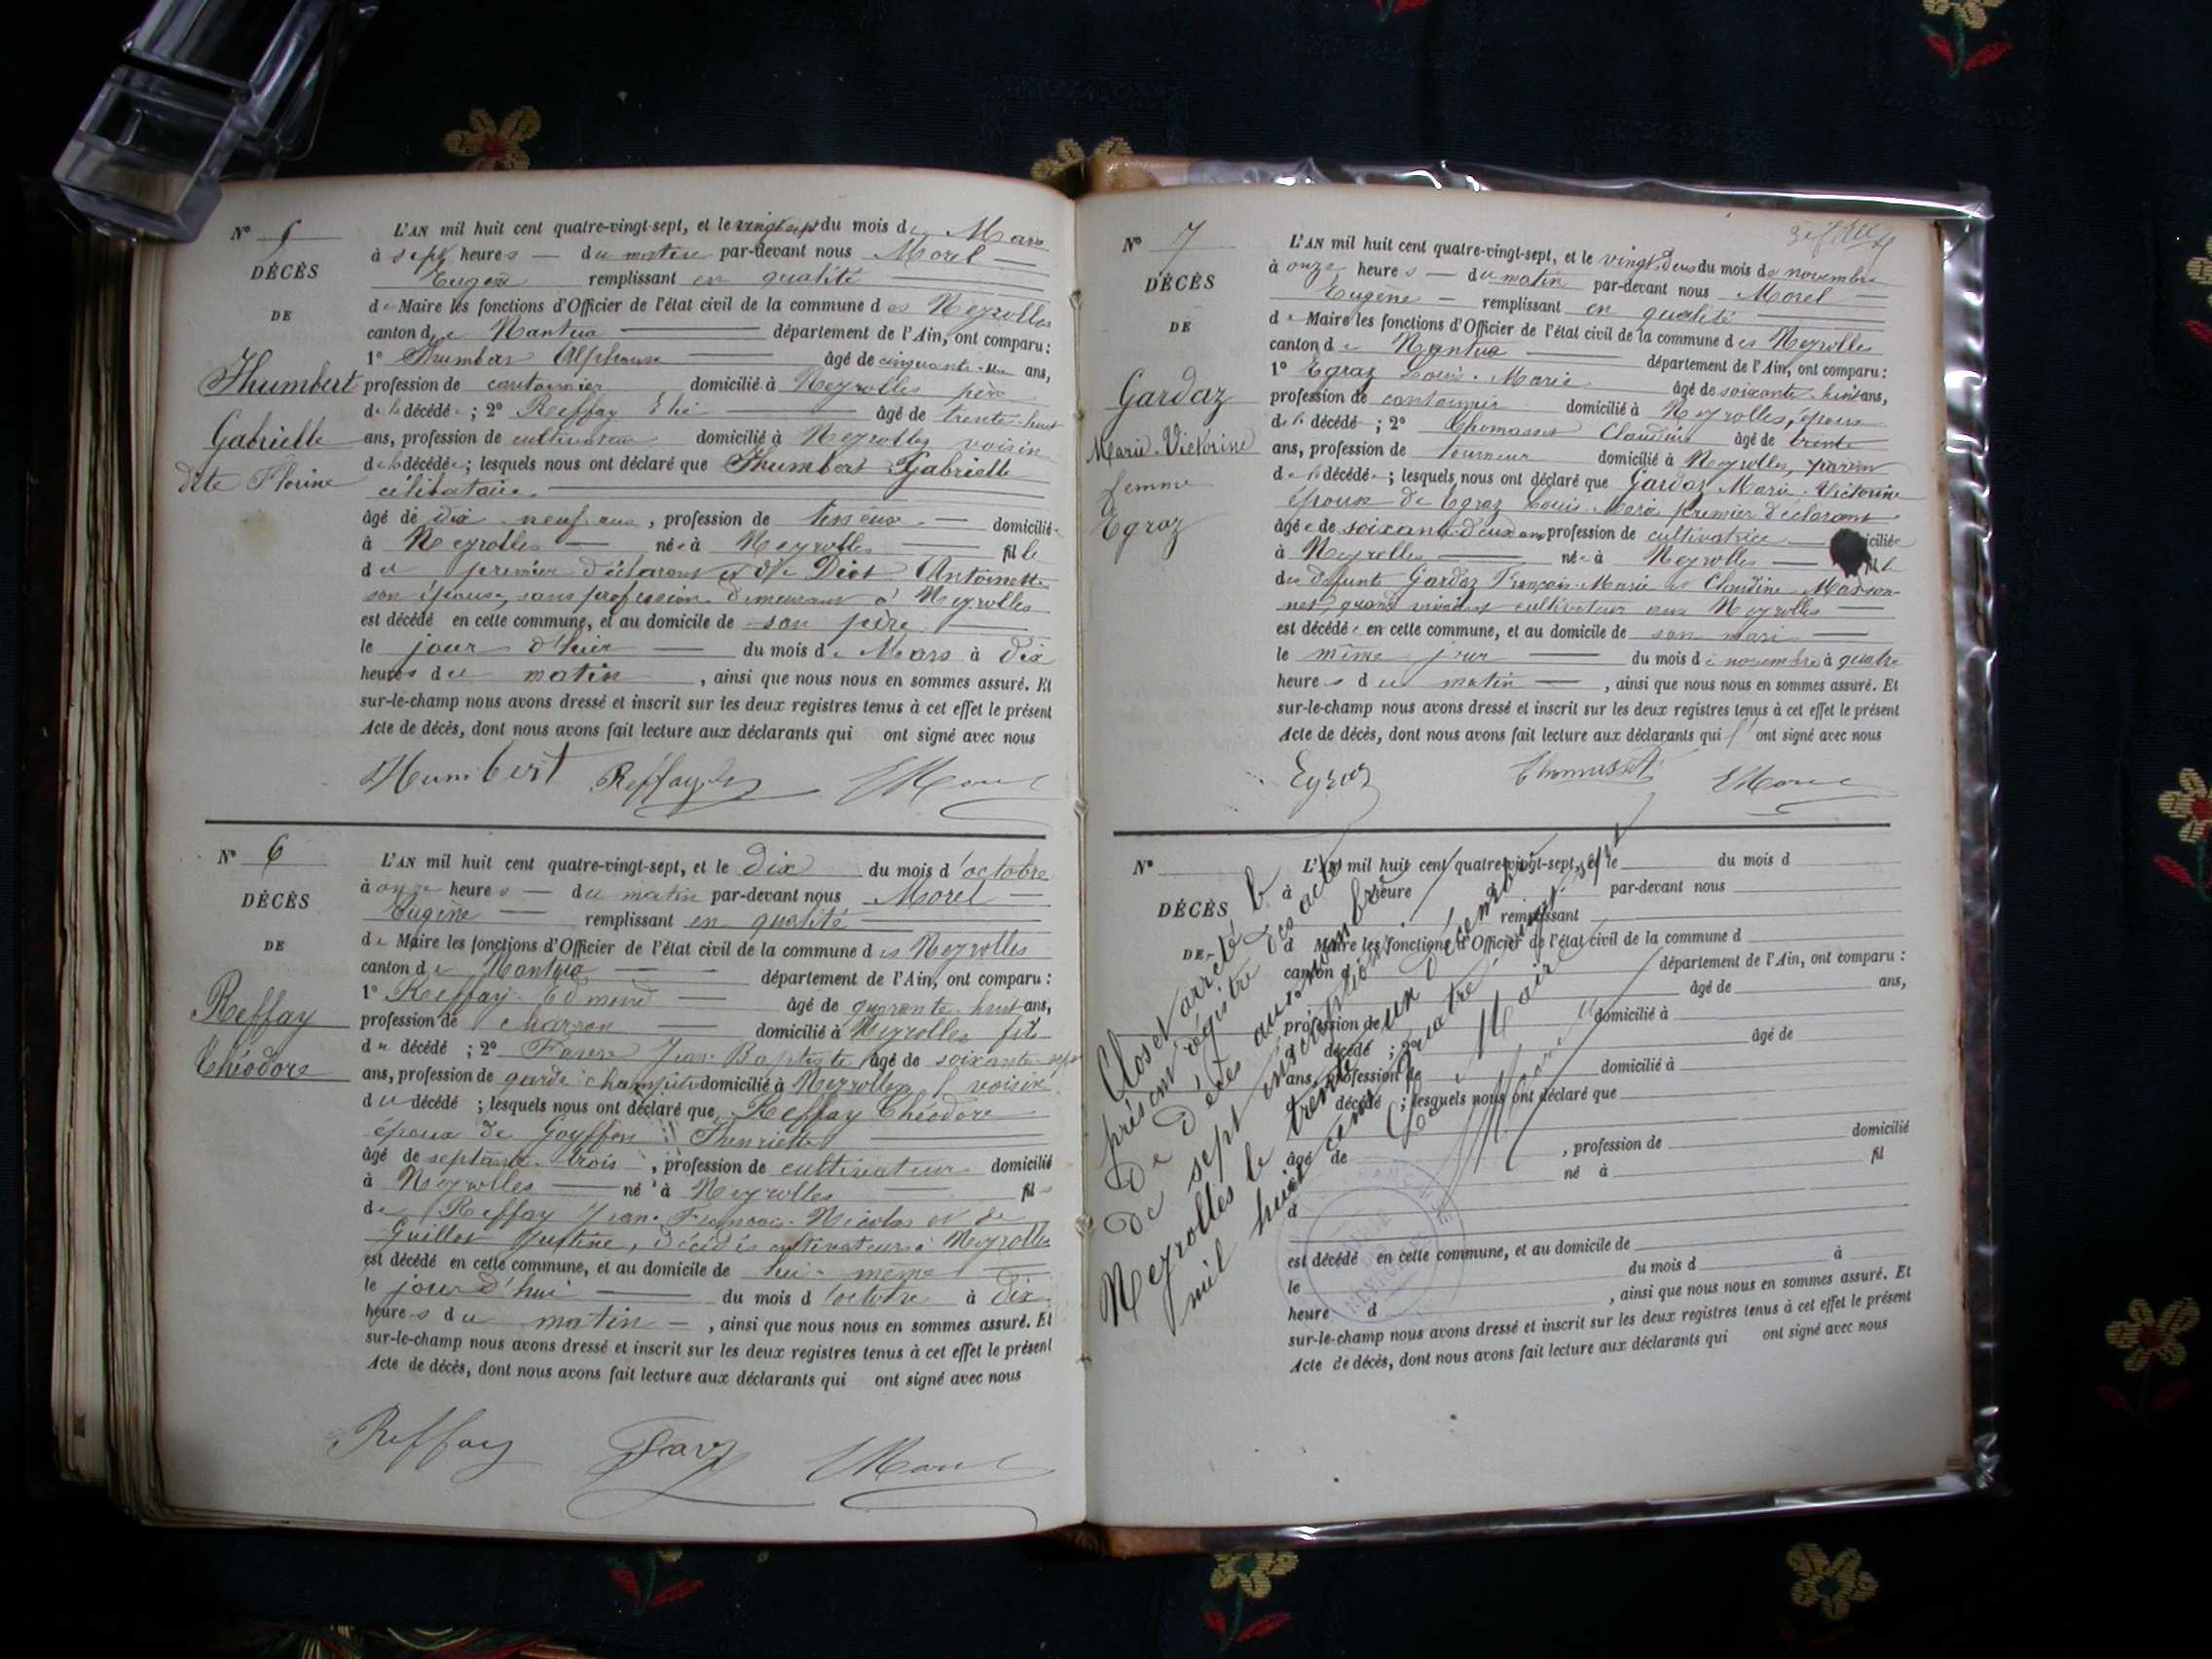 N° 5
DÉCÈS
DE
Thumbert
Gabrielle
dite Florine
L'AN mil huit cent quatre-vingt-sept, et le vingt sept du mois de Mars
à sept heures — du matin par-devant nous Morel —
Eugène remplissant en qualité
de Maire les fonctions d'Officier de l'état civil de la commune des Neyrolles
canton de Nantua — département de l'Ain, ont comparu :
1° Thumbert Alphonse — âgé de cinquante-un ans,
profession de cantonnier domicilié à Neyrolles père
de la décédée ; 2° Reffay Elie — âgé de trente-huit
ans, profession de cultivateur domicilié à Neyrolles voisin
de la décédée ; lesquels nous ont déclaré que Thumbert Gabrielle
célibataire
âgé de dix-neuf ans, profession de — domiciliée
à Neyrolles — née à Neyrolles — fille
du premier déclarant et de Diot Antoinette
son épouse, sans profession demeurant à Neyrolles
est décédé en cette commune, et au domicile de son père
le jour d'hier — du mois de Mars à dix
heures du matin, ainsi que nous nous en sommes assuré. Et
sur-le-champ nous avons dressé et inscrit sur les deux registres tenus à cet effet le présent
Acte de décès, dont nous avons fait lecture aux déclarants qui ont signé avec nous
Thumbert Reffay EMorel
N° 6
DÉCÈS
DE
Reffay
Théodore
L'AN mil huit cent quatre-vingt-sept, et le dix du mois d'octobre
à onze heures — du matin par-devant nous Morel —
Eugène — remplissant en qualité
de Maire les fonctions d'Officier de l'état civil de la commune des Neyrolles
canton de Nantua — département de l'Ain, ont comparu :
1° Reffay Edmond — âgé de quarante-huit ans,
profession de charron — domicilié à Neyrolles fils
du décédé ; 2° Jean-Baptiste âgé de soixante-sept
ans, profession de garde champêtre domicilié à Neyrolles voisin
du décédé ; lesquels nous ont déclaré que Reffay Théodore
époux de Goyffon Thenriette
âgé de septante-trois, profession de cultivateur domicilié
à Neyrolles — né à Neyrolles — fils
de Reffay Jean-François-Nicolas et de
Guillot Justine, décédés cultivateurs à Neyrolles
est décédé en cette commune, et au domicile de lui-même
le jour d'hui — du mois d'octobre à dix
heures du matin —, ainsi que nous nous en sommes assuré. Et
sur-le-champ nous avons dressé et inscrit sur les deux registres tenus à cet effet le présent
Acte de décès, dont nous avons fait lecture aux déclarants qui ont signé avec nous
Reffay EMorel
N° 7
DÉCÈS
DE
Gardaz
Marie-Victorine
femme
Egraz
L'AN mil huit cent quatre-vingt-sept, et le vingt-deux du mois de novembre
à onze heures — du matin par-devant nous Morel —
Eugène — remplissant en qualité
de Maire les fonctions d'Officier de l'état civil de la commune des Neyrolles
canton de Nantua — département de l'Ain, ont comparu :
1° Egraz Louis-Marie âgé de soixante-huit ans,
profession de cantonnier domicilié à Neyrolles, époux
de la décédée ; 2° Thomasset Claudius âgé de trente
ans, profession de tourneur domicilié à Neyrolles,
de la décédée ; lesquels nous ont déclaré que Gardaz Marie-Victorine
épouse de Egraz Louis-Marie premier déclarant
âgée de soixante-deux ans profession de cultivatrice — iciliée
à Neyrolles — née à Neyrolles —
des défunts Gardaz François-Marie et Claudine Masson-
net, quand vivaient cultivateurs aux Neyrolles —
est décédée en cette commune, et au domicile de son mari —
le même jour — du mois de novembre à quatre
heures du matin —, ainsi que nous nous en sommes assuré. Et
sur-le-champ nous avons dressé et inscrit sur les deux registres tenus à cet effet le présent
Acte de décès, dont nous avons fait lecture aux déclarants qui ont signé avec nous
Egraz Thomasset EMorel
N°
DÉCÈS
DE
L'AN mil huit cent quatre-vingt-sept, et le du mois d
à heure par-devant nous
remplissant
d Maire les fonctions d'Officier de l'état civil de la commune d
canton d département de l'Ain, ont comparu :
âgé de ans,
profession de domicilié à
d décédé ; 2° âgé de
ans, profession de domicilié à
d décédé ; lesquels nous ont déclaré que
âgé de , profession de domicilié
à né à fil
d
est décédé en cette commune, et au domicile de
le du mois d à
heure d , ainsi que nous nous en sommes assuré. Et
sur-le-champ nous avons dressé et inscrit sur les deux registres tenus à cet effet le présent
Acte de décès, dont nous avons fait lecture aux déclarants qui ont signé avec nous
Clos et arrêté le
présent régistre des actes
de décès au nombre
de sept inscriptions.
Neyrolles le trente un décembre
mil huit cent quatre vingt sept
Le Maire
EMorel